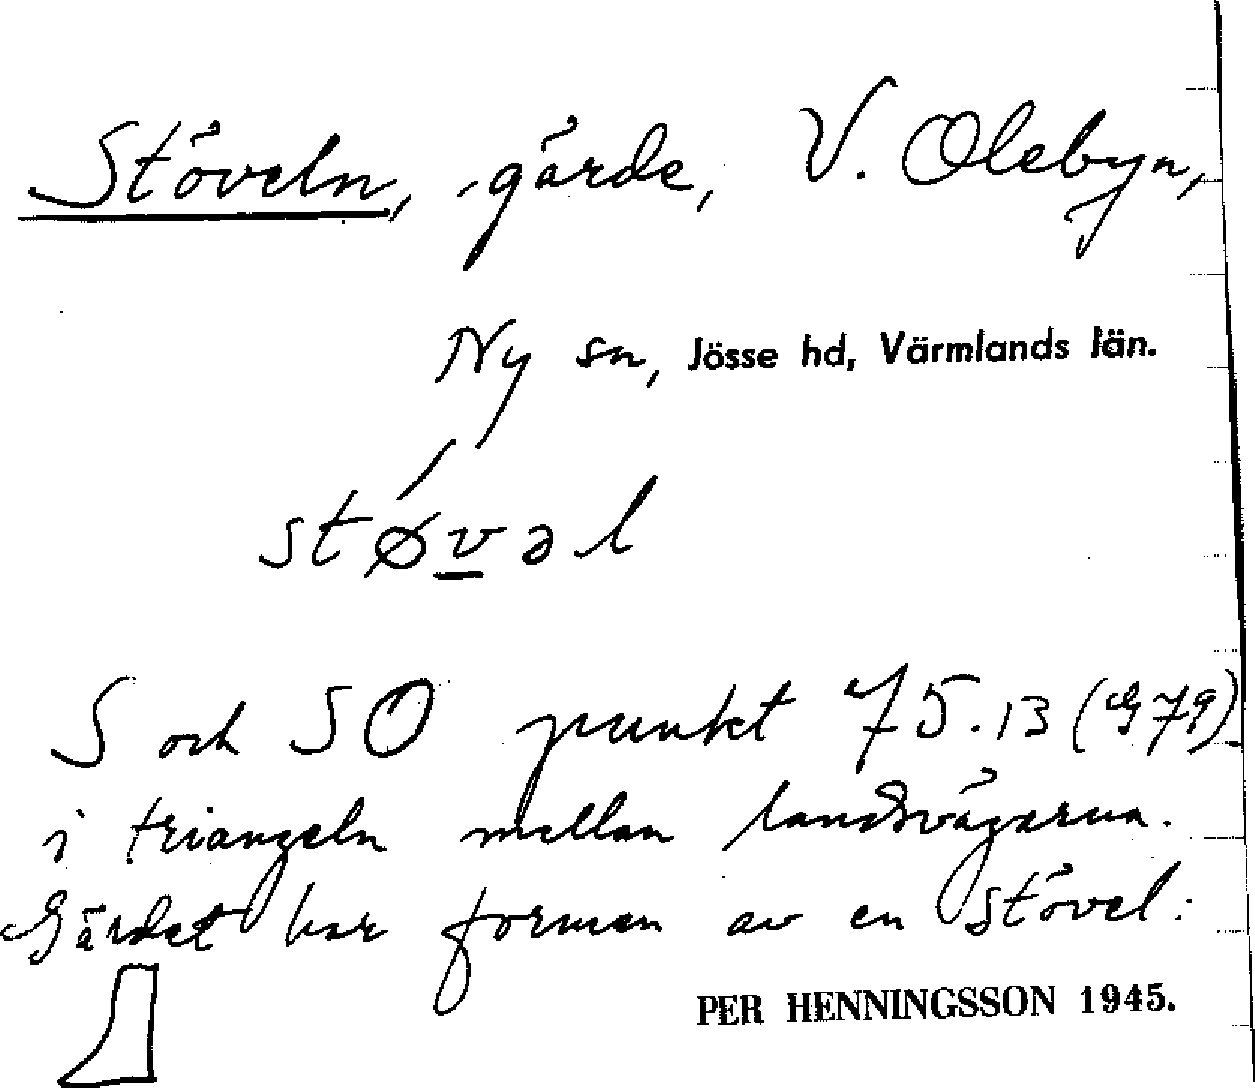 Stöveln, gärde, V. Olebyn,
Ny sn, Jösse hd, Värmlands län.
stø´vəl
S och SO punkt 75.13 (G79)
i triangeln mellan landsvägarna.
Gärdet har formen av en stövel:
PER HENNINGSSON 1945.